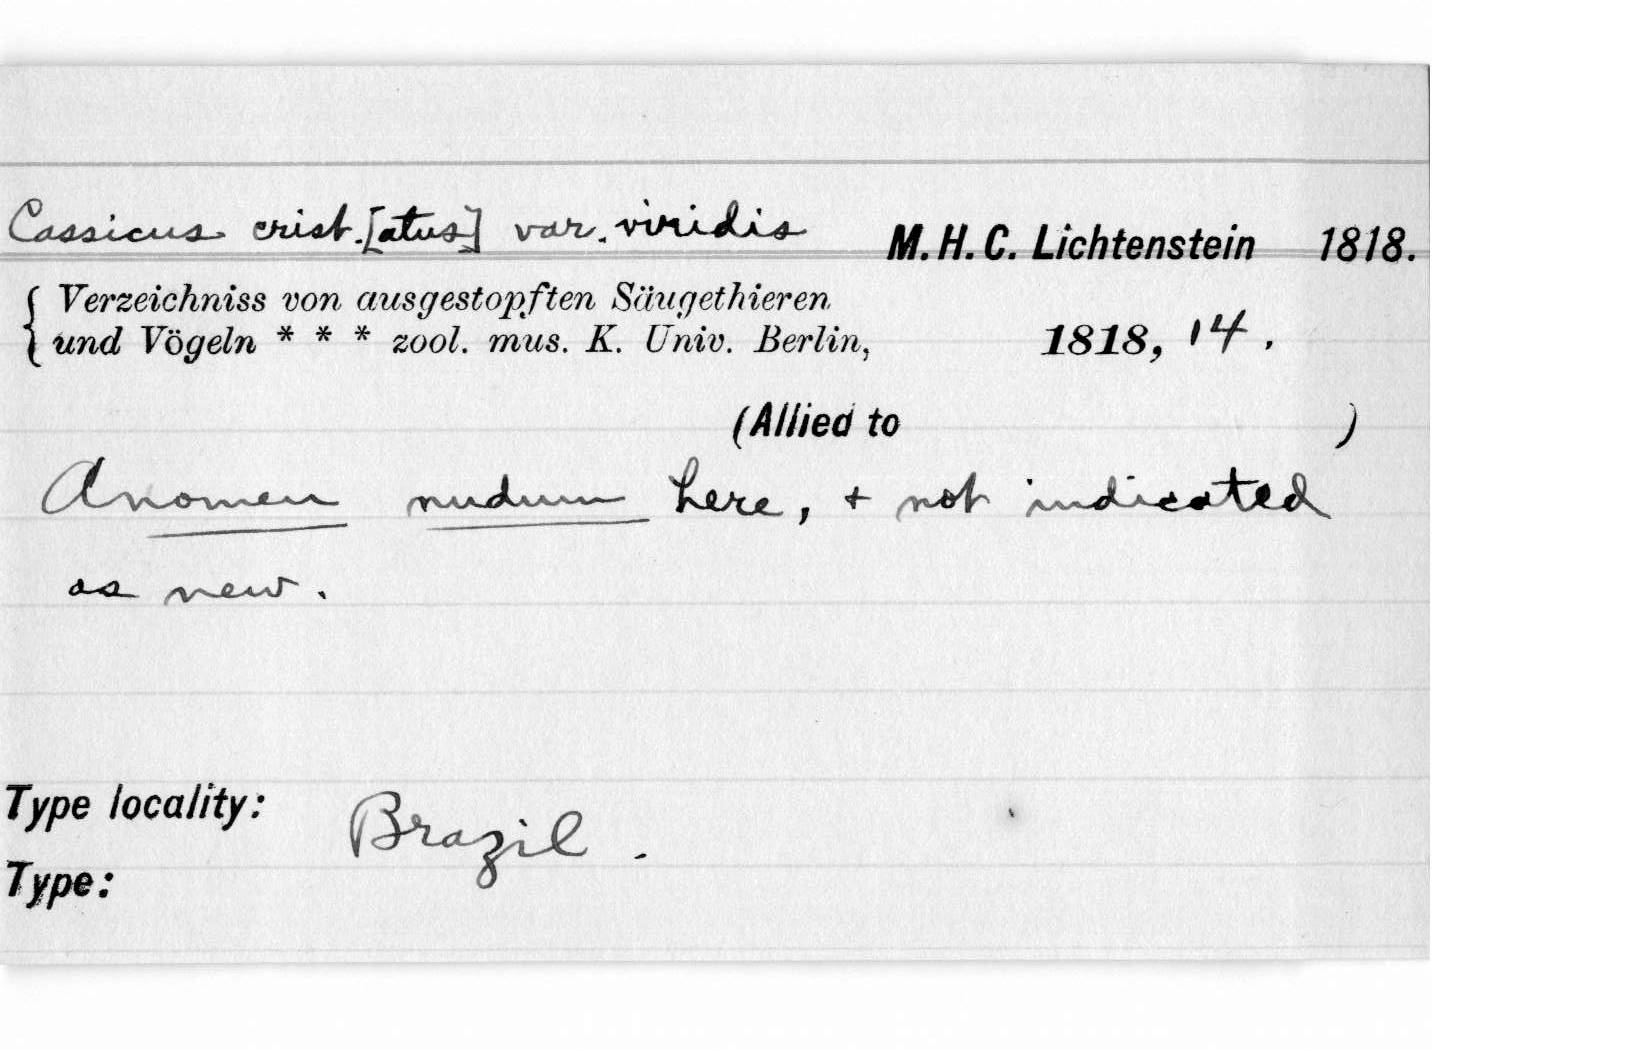 Cassicus crist.[atus] var. viridis M. H. C. Lichtenstein 1818.
{ Verzeichniss von ausgestopften Säugethieren
und Vögeln * * * zool. mus. K. Univ. Berlin, 1818, 14.
(Allied to )
A nomen nudum here, + not indicated
as new.
Type locality: Brazil.
Type: